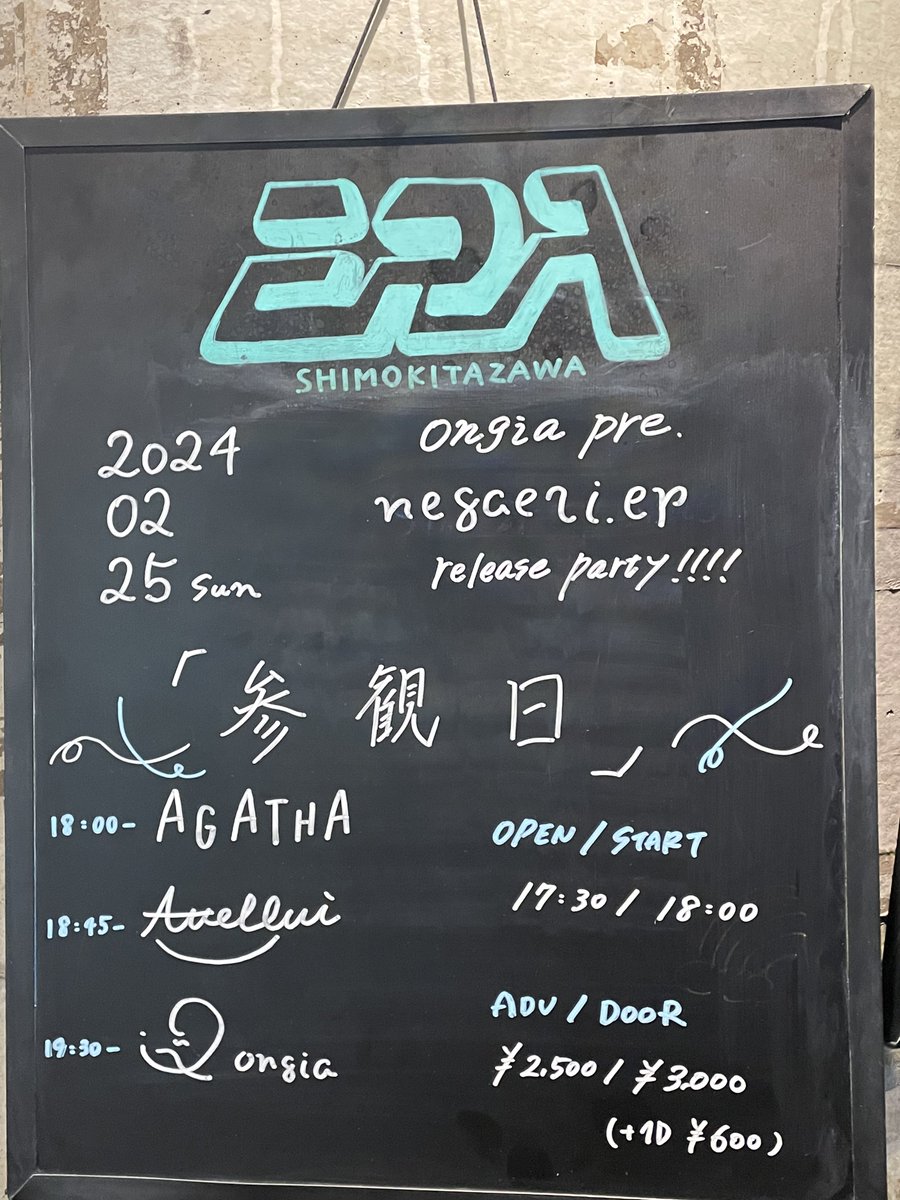 ERA
SHIMOKITAZAWA
2024
02
25 sun
ongia pre.
negaeri.ep
release party!!!!
「参観日」
18:00- AGATHA
18:45- Avellui
19:30- ongia
OPEN / START
17:30 / 18:00
ADV / DOOR
¥2.500 / ¥3.000
(+1D ¥600)